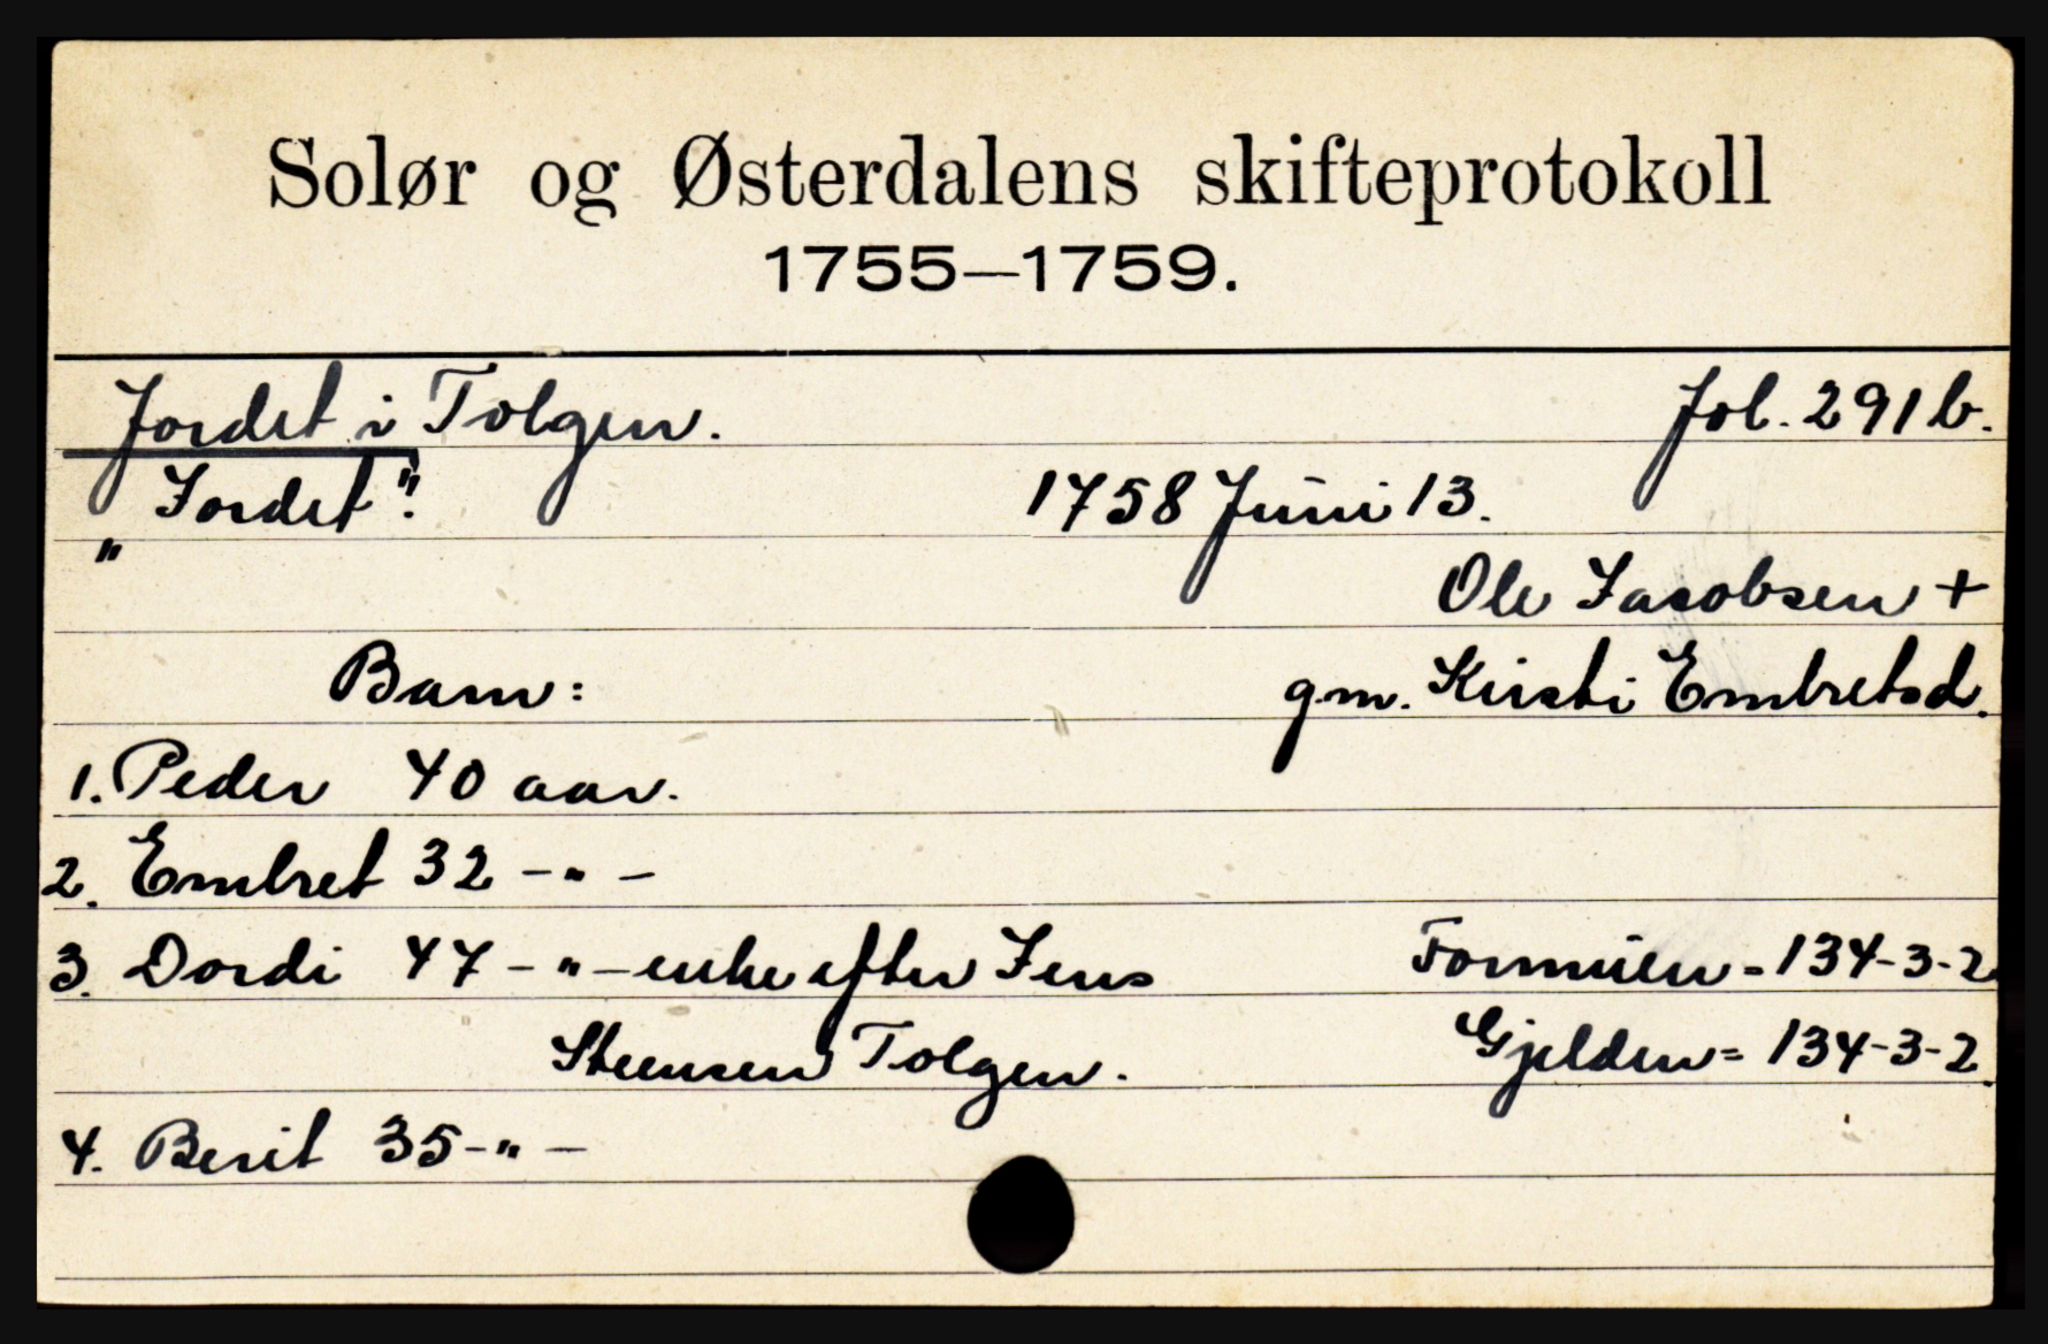 Solør og Østerdalens skifteprotokoll
1755—1759.
Jordet i Tolgen. Fol. 291 b.
„Jordet". 1758 Juni 13.
Ole Jacobsen +
Barn: g.m. Kirsti Embretsd.
1. Peder 40 aar.
2. Embret 32 -"-
3. Dordi 47 -"- enke efter Jens Formuen = 134-3-2
Steensen Tolgen. Gjelden = 134-3-2.
4. Berit 35 -"-